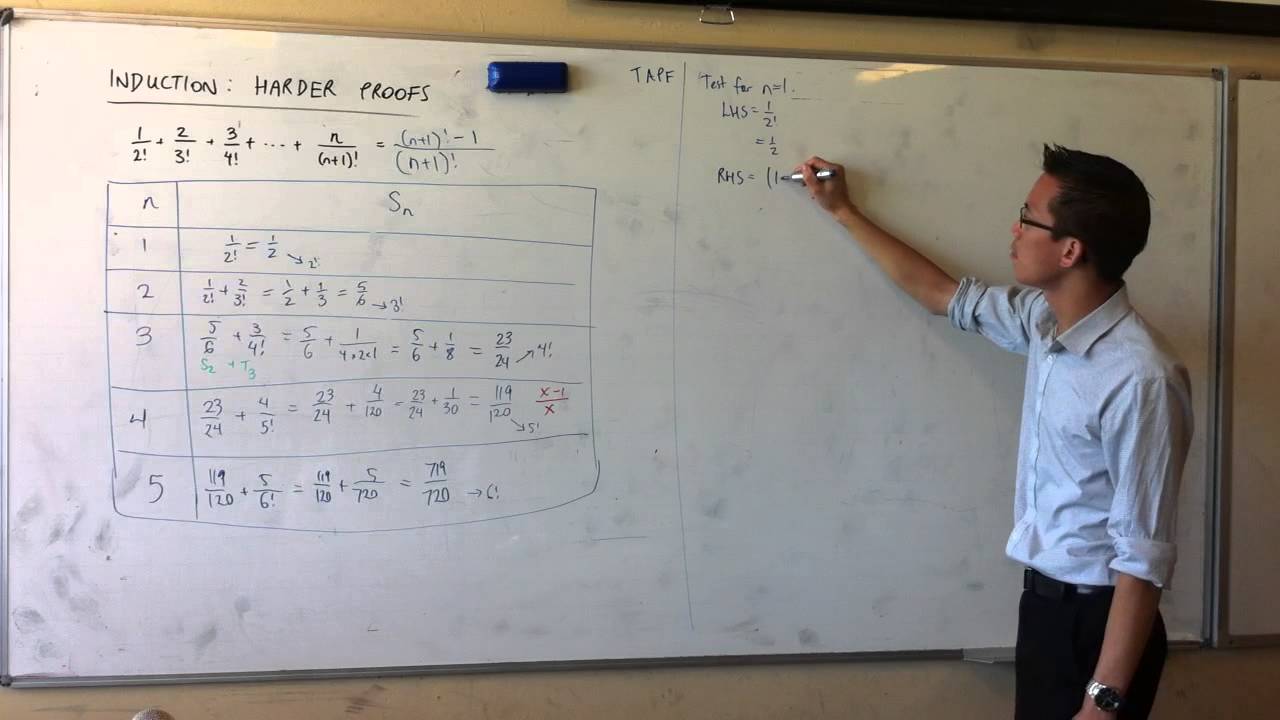 INDUCTION: HARDER PROOFS
1/2! + 2/3! + 3/4! + ... + n/(n+1)! = (n+1)! - 1/(n+1)!
n Sn
1 1/2! = 1/2 → 2!
2 1/2! + 2/3! = 1/2 + 1/3 = 5/6 → 3!
3 5/6 + 3/4! = 5/6 + 1/4×2×1 = 5/6 + 1/8 = 23/24 → 4!
S2 + T3
4 23/24 + 4/5! = 23/24 + 4/120 = 23/24 + 1/30 = 119/120 → 5! x-1/x
5 119/120 + 5/6! = 119/120 + 5/720 = 719/720 → 6!
TAPF
Test for n=1.
LHS = 1/2!
= 1/2
RHS = (1